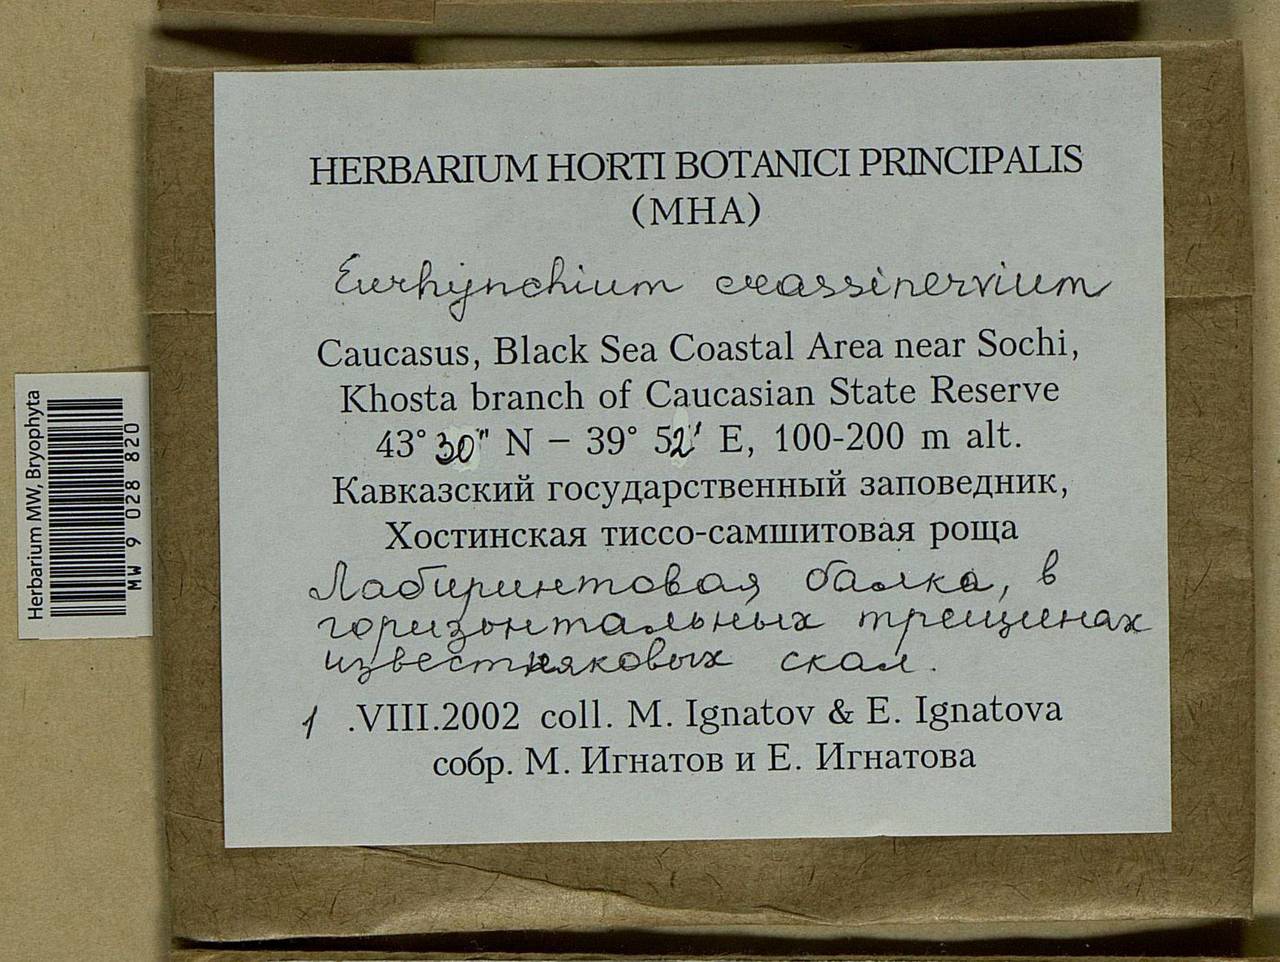 HERBARIUM HORTI BOTANICI PRINCIPALIS
(MHA)
Eurhynchium crassinervium
Caucasus, Black Sea Coastal Area near Sochi,
Khosta branch of Caucasian State Reserve
43° 30" N – 39° 52' E, 100-200 m alt.
Кавказский государственный заповедник,
Хостинская тиссо-самшитовая роща
Лабиринтовая балка, в
горизонтальных трещинах
известняковых скал.
1 .VIII.2002 coll. M. Ignatov & E. Ignatova
собр. М. Игнатов и Е. Игнатова
Herbarium MW, Bryophyta
MW 9 028 820